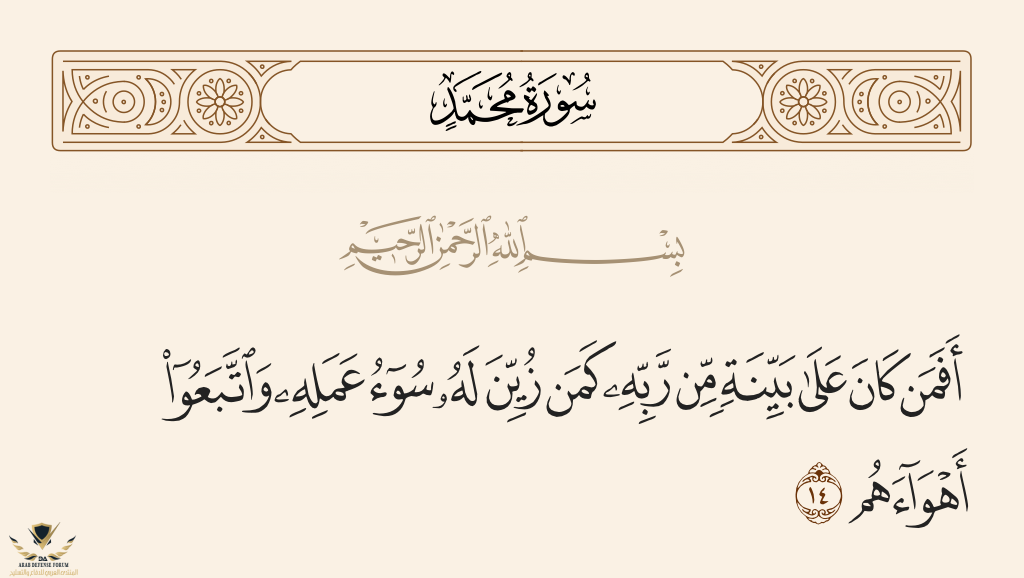 سُورَةُ مُحَمَّدٍ
بِسْمِ ٱللَّهِ ٱلرَّحْمَٰنِ ٱلرَّحِيمِ
أَفَمَن كَانَ عَلَىٰ بَيِّنَةٍ مِّن رَّبِّهِۦ كَمَن زُيِّنَ لَهُۥ سُوٓءُ عَمَلِهِۦ وَٱتَّبَعُوٓا۟
أَهْوَآءَهُم ١٤
DA
ARAB DEFENSE FORUM
المنتدى العربي للدفاع والتسليح